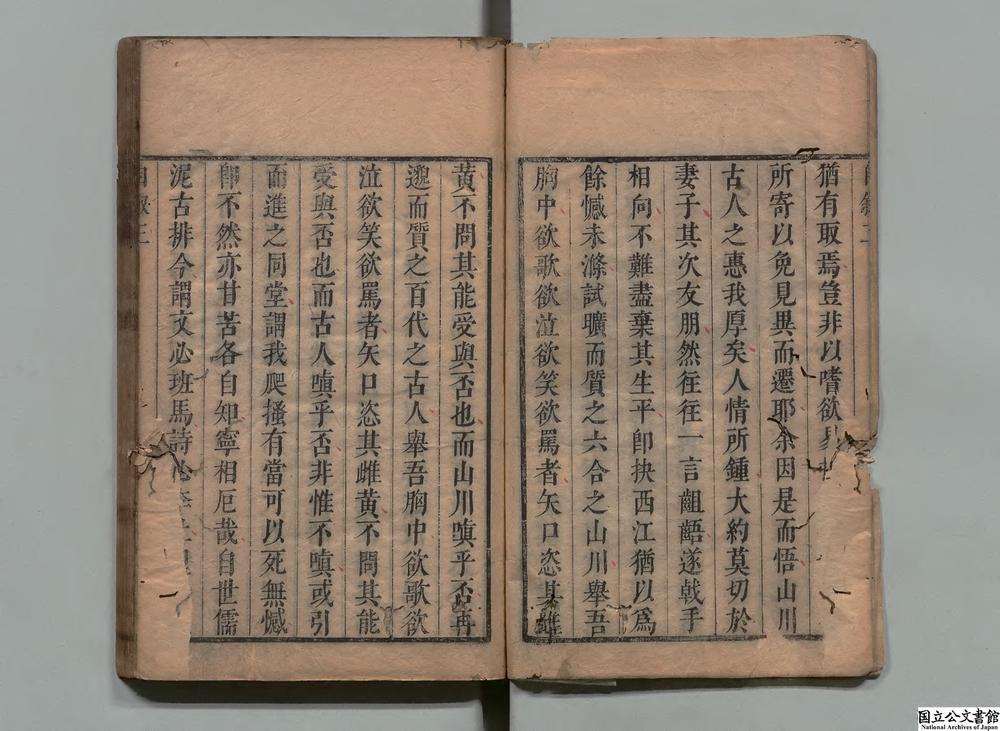 自敘二
猶有取焉豈非以嗜欲
所寄以免見異而遷耶余因是而悟山川
古人之惠我厚矣人情所鍾大約莫切於
妻子其次友朋然往往一言齟齬遂戟手
相向不難盡棄其生平卽抉西江猶以爲
餘憾未滌試曠而質之六合之山川舉吾
胸中欲歌欲泣欲笑欲罵者矢口恣其雌
黃不問其能受與否也而山川嗔乎否再
邈而質之百代之古人舉吾胸中欲歌欲
泣欲笑欲罵者矢口恣其雌黃不問其能
受與否也而古人嗔乎否非惟不嗔或引
而進之同堂謂我爬搔有當可以死無憾
卽不然亦甘苦各自知寧相厄哉自世儒
泥古排今謂文必班馬詩必
自敘三
国立公文書館
National Archives of Japan